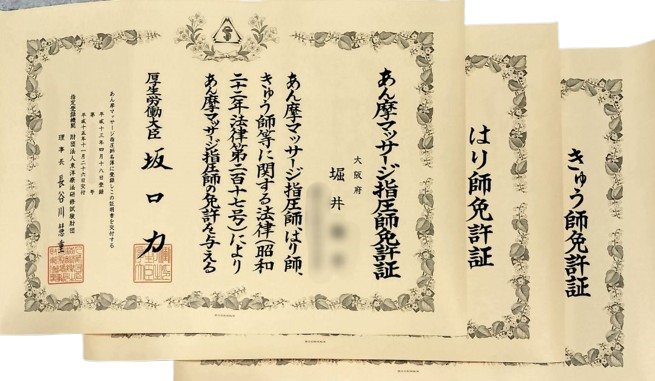 あん摩マッサージ指圧師免許証
大阪府
堀井
あん摩マッサージ指圧師はり師、
きゅう師等に関する法律(昭和
二十二年法律第二百十七号)により
あん摩マッサージ指圧師の免許を与える
厚生労働大臣 坂口力
あん摩マッサージ指圧師名簿に登録しこの証明書を交付する
平成十三年四月十八日登録
第 号
平成十五年十一月二十六日交付
指定登録機関 財団法人東洋療法研修試験財団
理事長 長谷川慧重
はり師免許証
きゅう師免許証